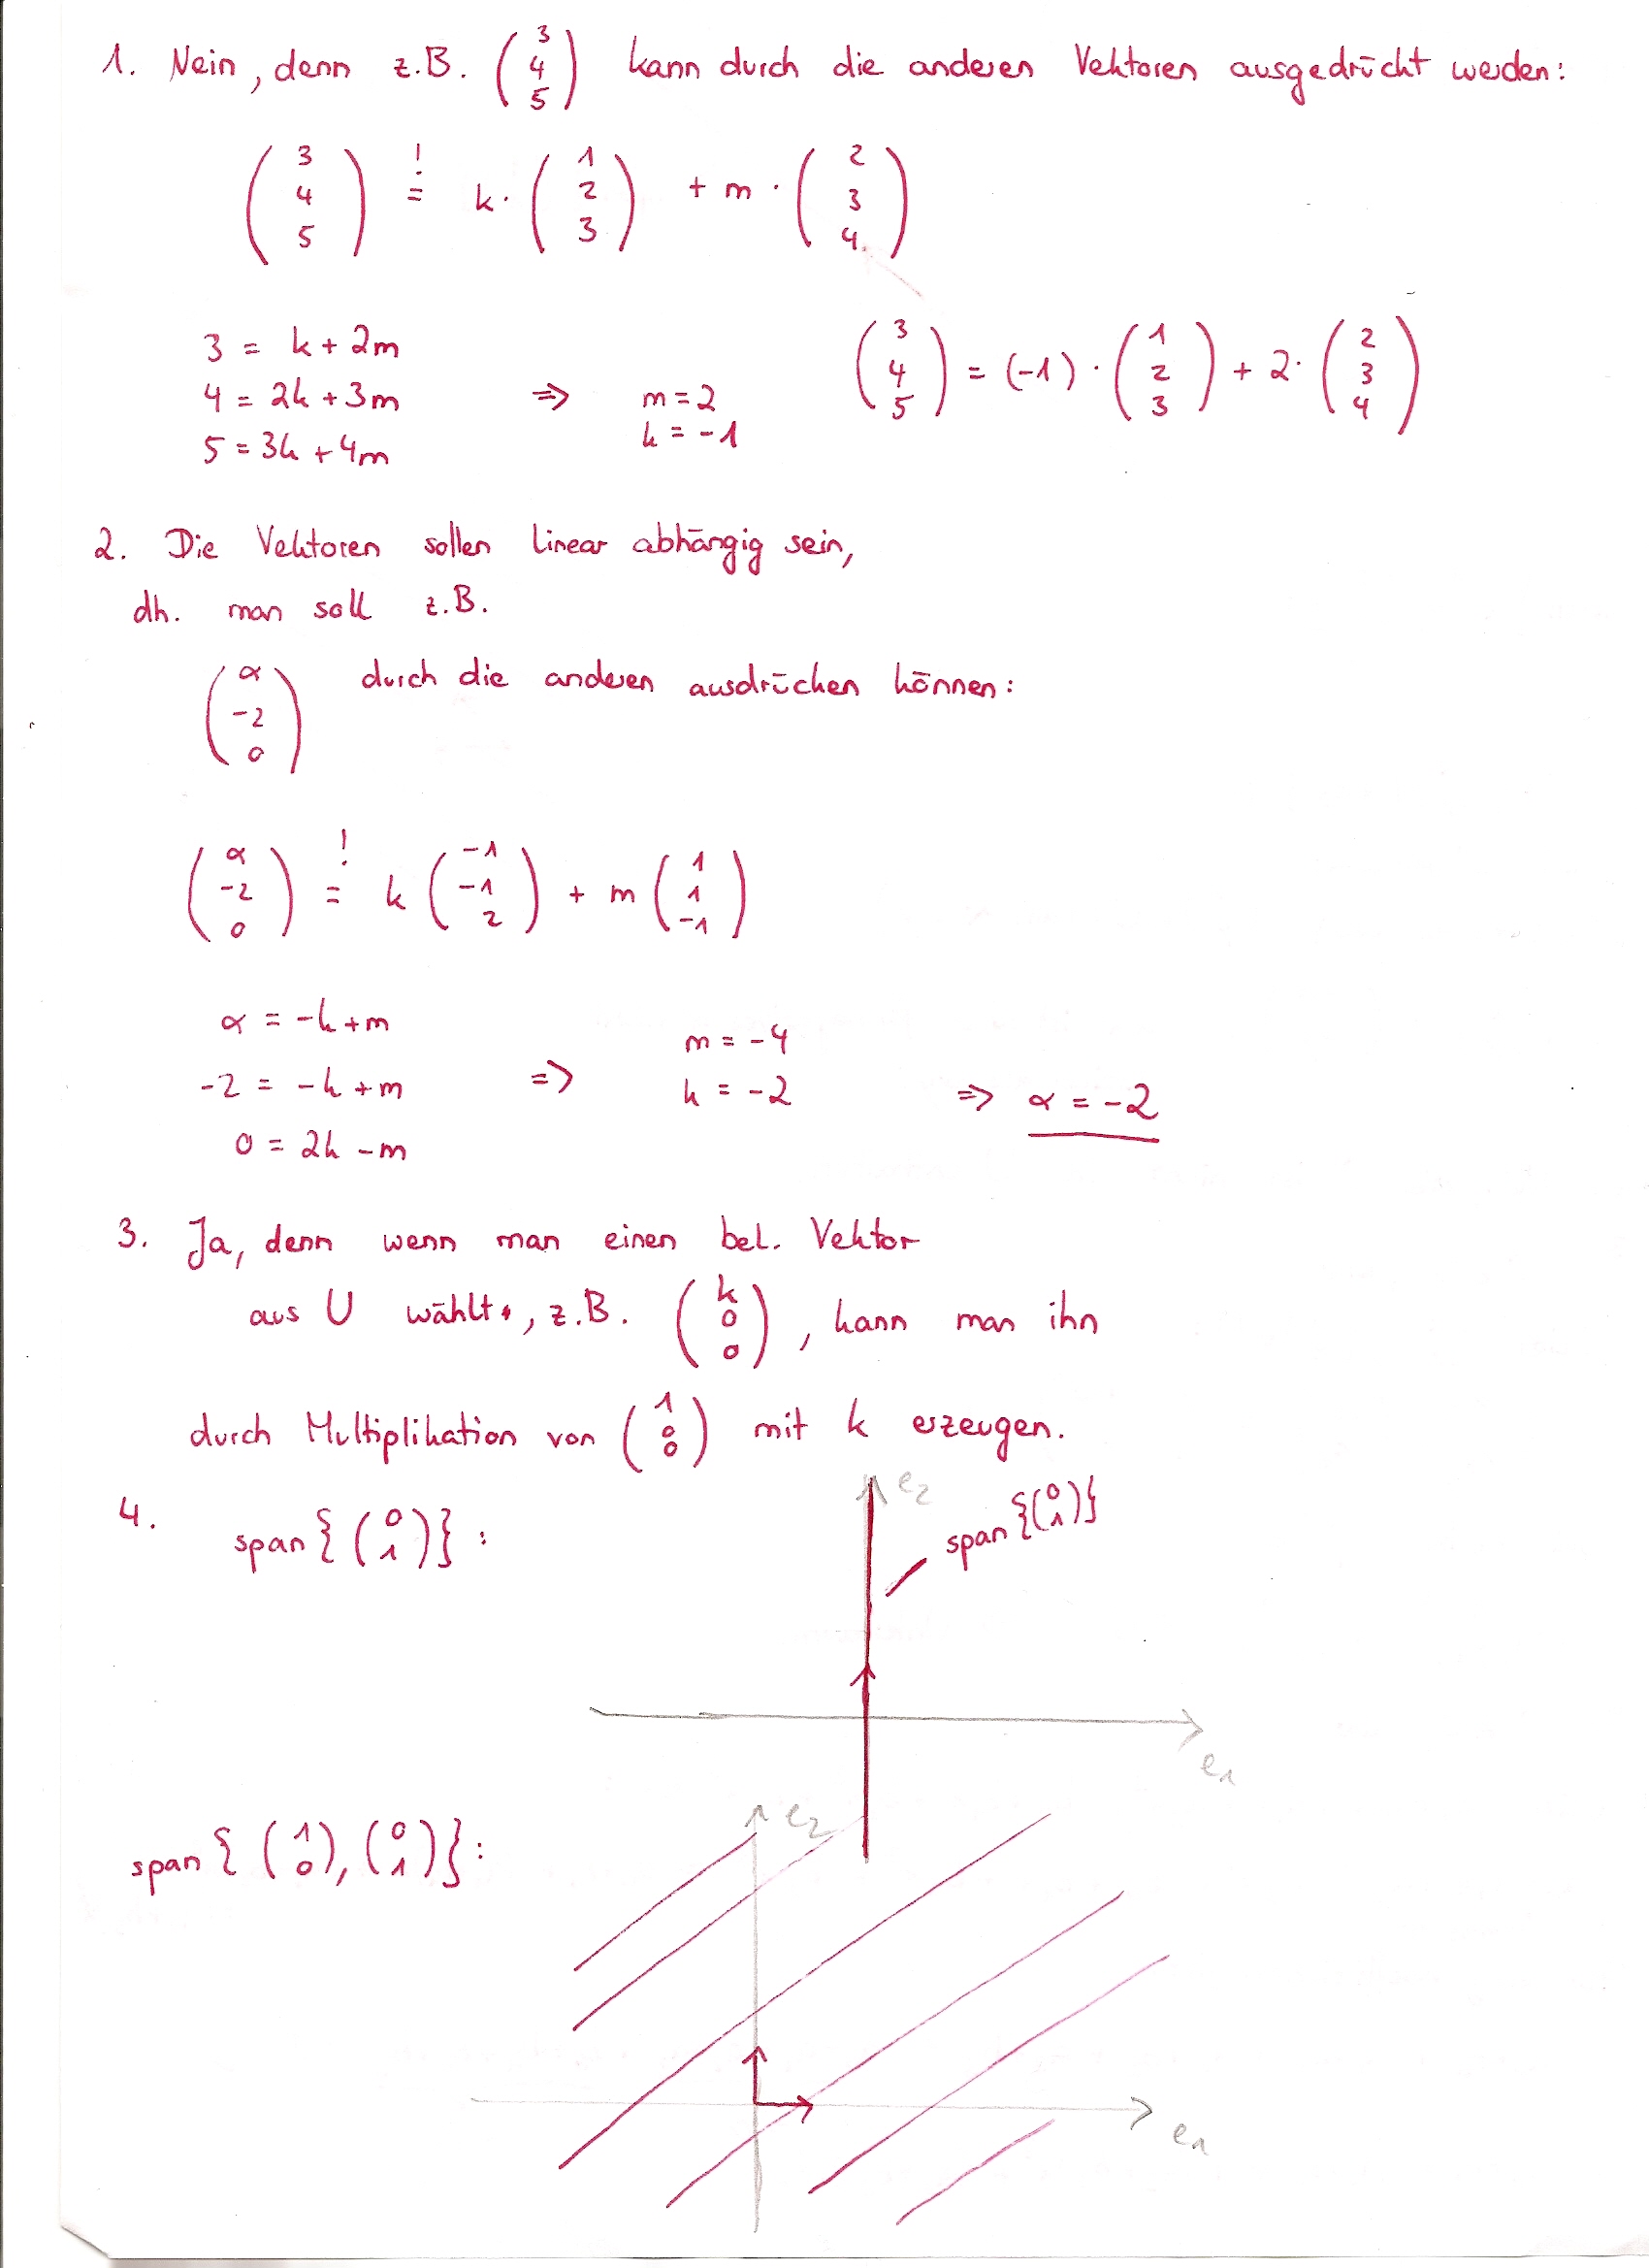 1. Nein, denn z.B. (3 4 5) kann durch die anderen Vektoren ausgedrückt werden:
(3 4 5) =! k · (1 2 3) + m · (2 3 4)
3 = k + 2m
4 = 2k + 3m ⇒ m = 2
k = -1
5 = 3k + 4m
(3 4 5) = (-1) · (1 2 3) + 2 · (2 3 4)
2. Die Vektoren sollen linear abhängig sein,
dh. man soll z.B.
(α -2 0) durch die anderen ausdrücken können:
(α -2 0) =! k (-1 -1 2) + m (1 1 -1)
α = -k + m
-2 = -k + m ⇒ m = -4
k = -2 ⇒ α = -2
0 = 2k - m
3. Ja, denn wenn man einen bel. Vektor
aus U wählt, z.B. (k 0 0), kann man ihn
durch Multiplikation von (1 0 0) mit k erzeugen.
4. span{(0 1)}:
e2
span{(0 1)}
e1
span{(1 0), (0 1)}:
e2
e1